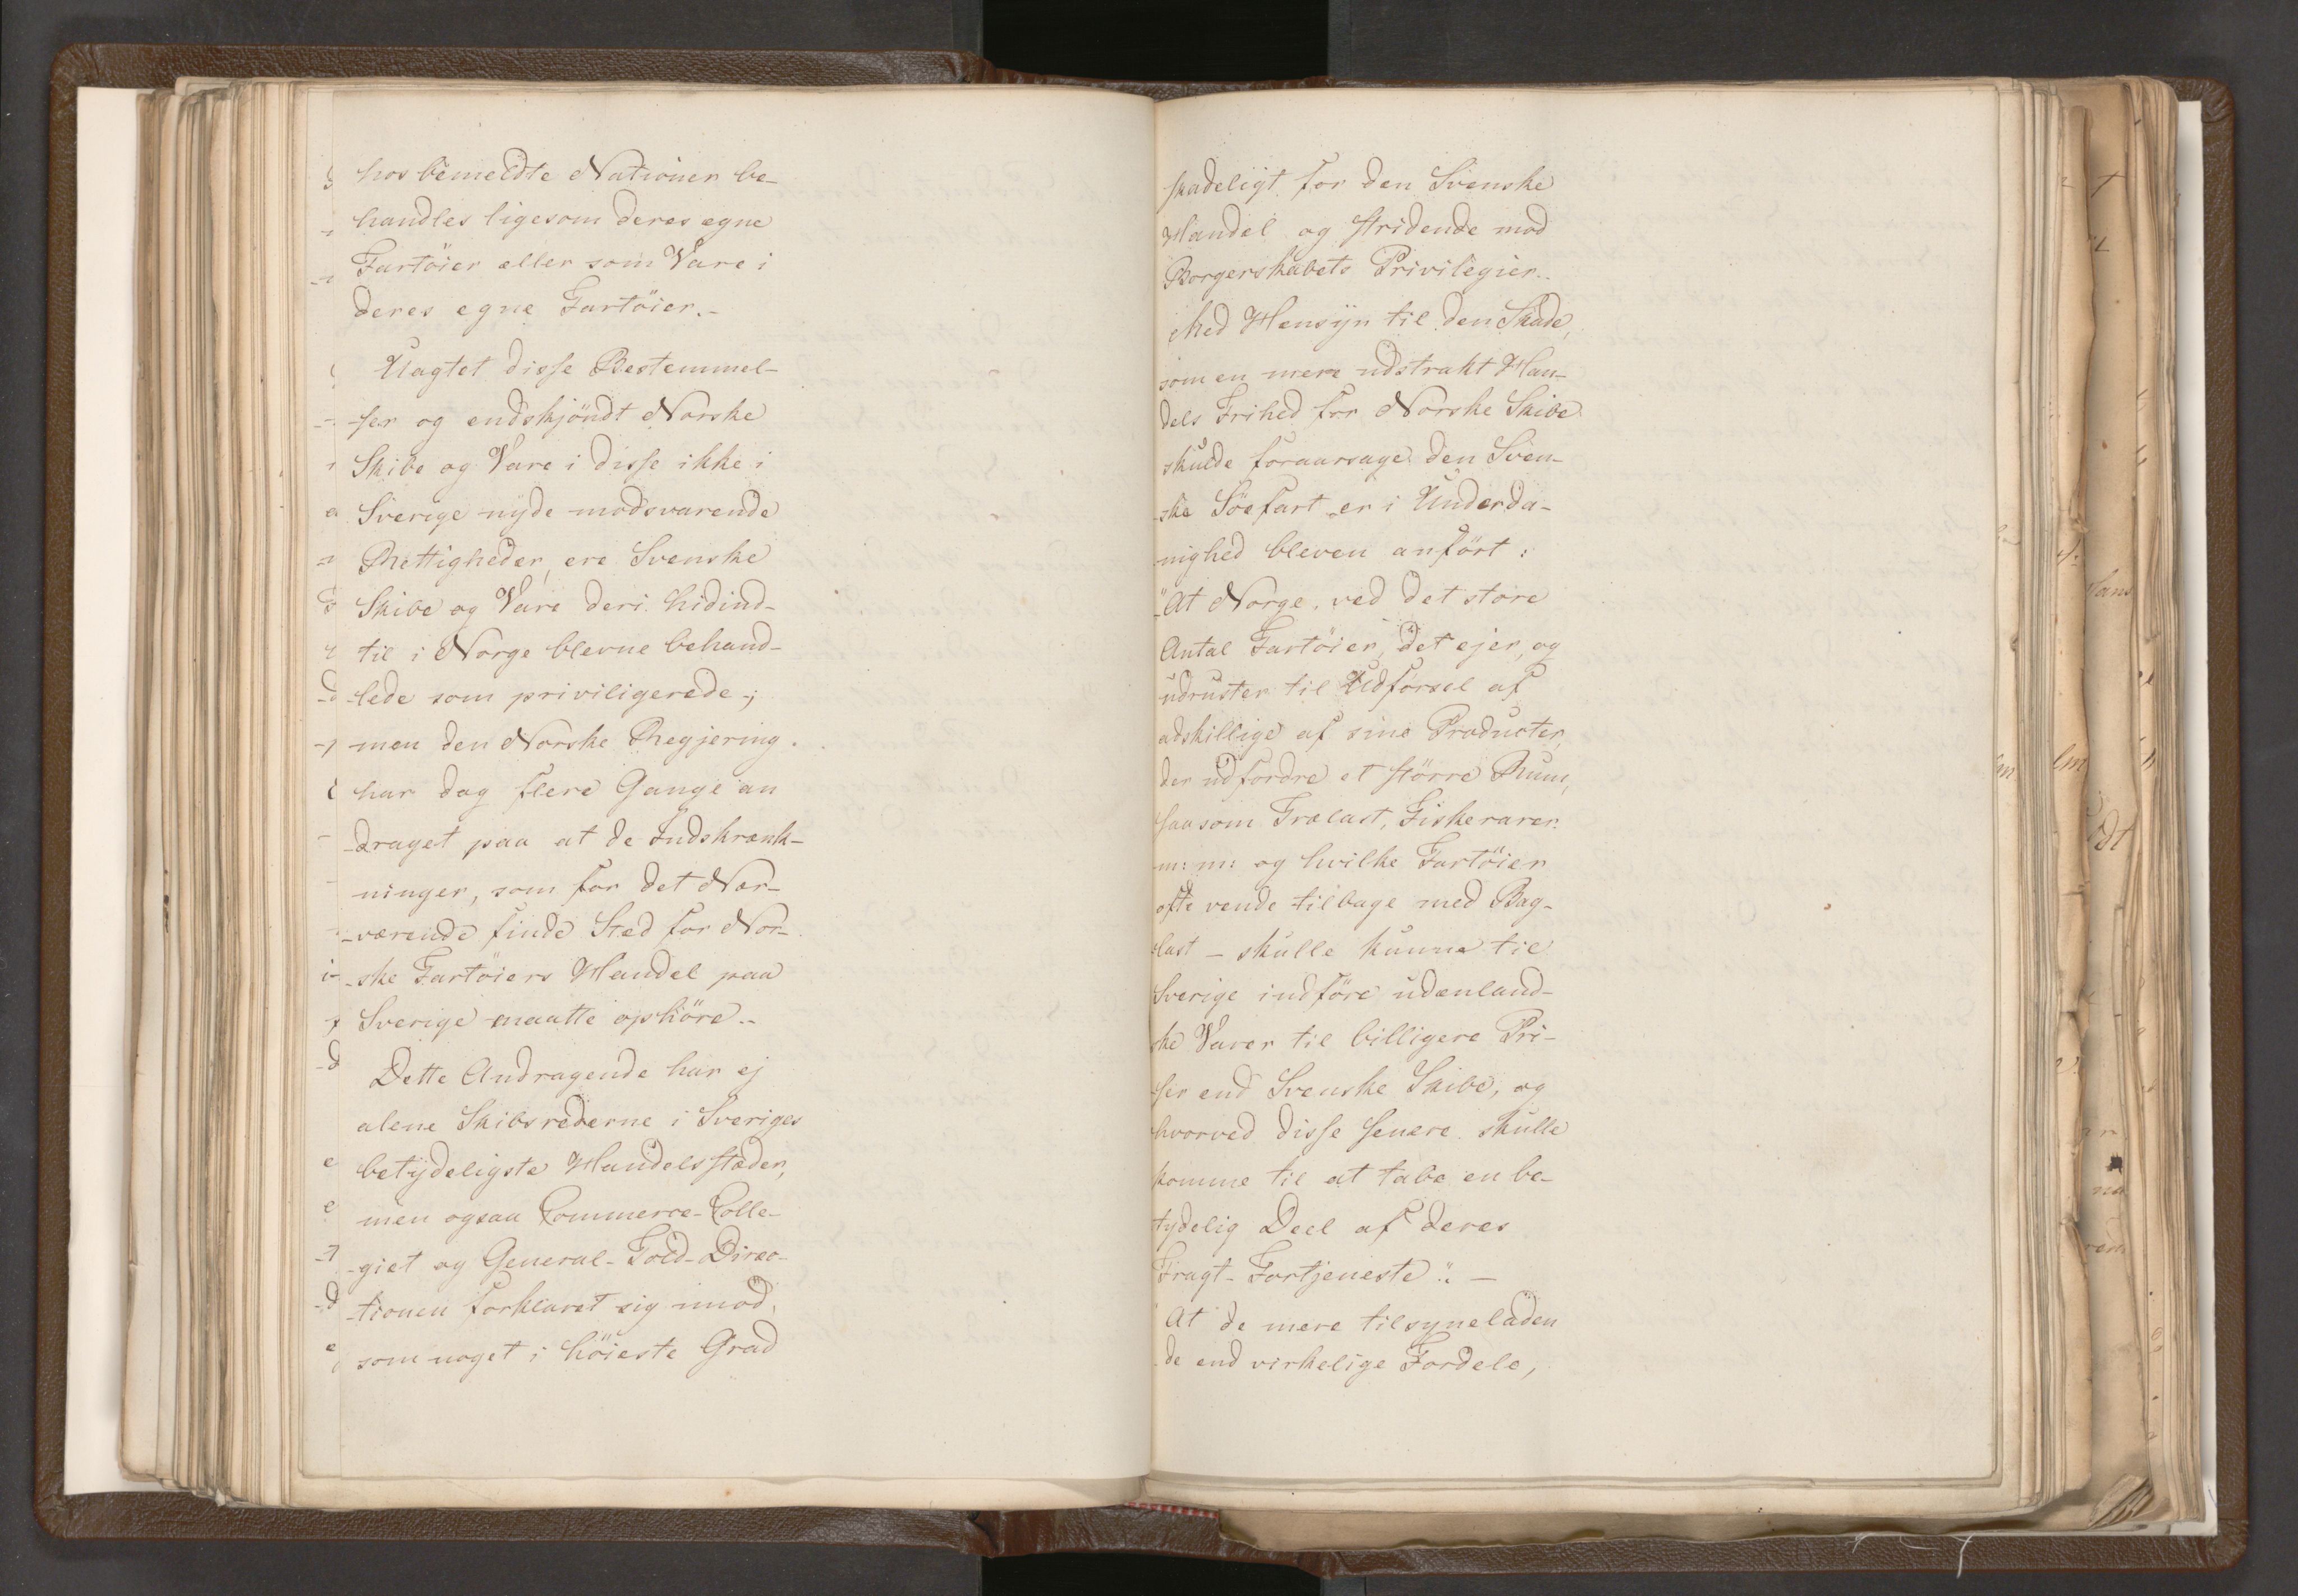 hos bemeldte Nationer be-
handles ligesom deres egne
Fartöier eller som Vare i
deres egne Fartöier.-
Uagtet disse Bestemmel-
ser og endskjöndt Norske
Skibe og Vare i disse ikke i
Sverige nyde modsvarende
Rettigheder, ere Svenske
Skibe og Vare deri hidind-
til i Norge blevne behand-
lede som priviligerede-;
men den Norske Regjering
har dog flere Gange an
-draget paa at de Indskrænk-
ninger, som for det Nær-
-værende finde Sted for Nor-
-ske Fartöiers Handel paa
Sverige maatte ophöre.-
Dette Andragende har ej
alene Skibsrederne i Sveriges
betydeligste Handelsstæder,
men ogsaa Commerce-Colle-
-giet og General-Told-Direc-
-tionen forklaret sig imod,
som noget i höieste Grad
skadeligt for den Svenske
Handel og stridende mod
Borgerskabets Privilegier.
Med Hensyn til den Skade,
som en mere udstrakt Han-
dels Frihed for Norske Skibe
skulde foraarsage den Sven-
ske Söefart er i Underda-
-nighed bleven anfört:
"At Norge, ved det store
Antal Fartöier, det ejer, og
udruster til Udförsel af
adskillige af sine Producter,
der udfordre et större Rum,
saasom Trælast, Fiskevarer
m: m: og hvilke Fartöier
ofte vende tilbage med Bag-
last - skulle kunne til
Sverige indföre udenland-
ske Varer til billigere Pri-
ser end Svenske Skibe, og
hvorved disse senere skulle
komme til at tabe en be-
tydelig Deel af deres
Fragt-Fortjeneste". -
At de mere tilsyneladen
de end virkelige Fordele,